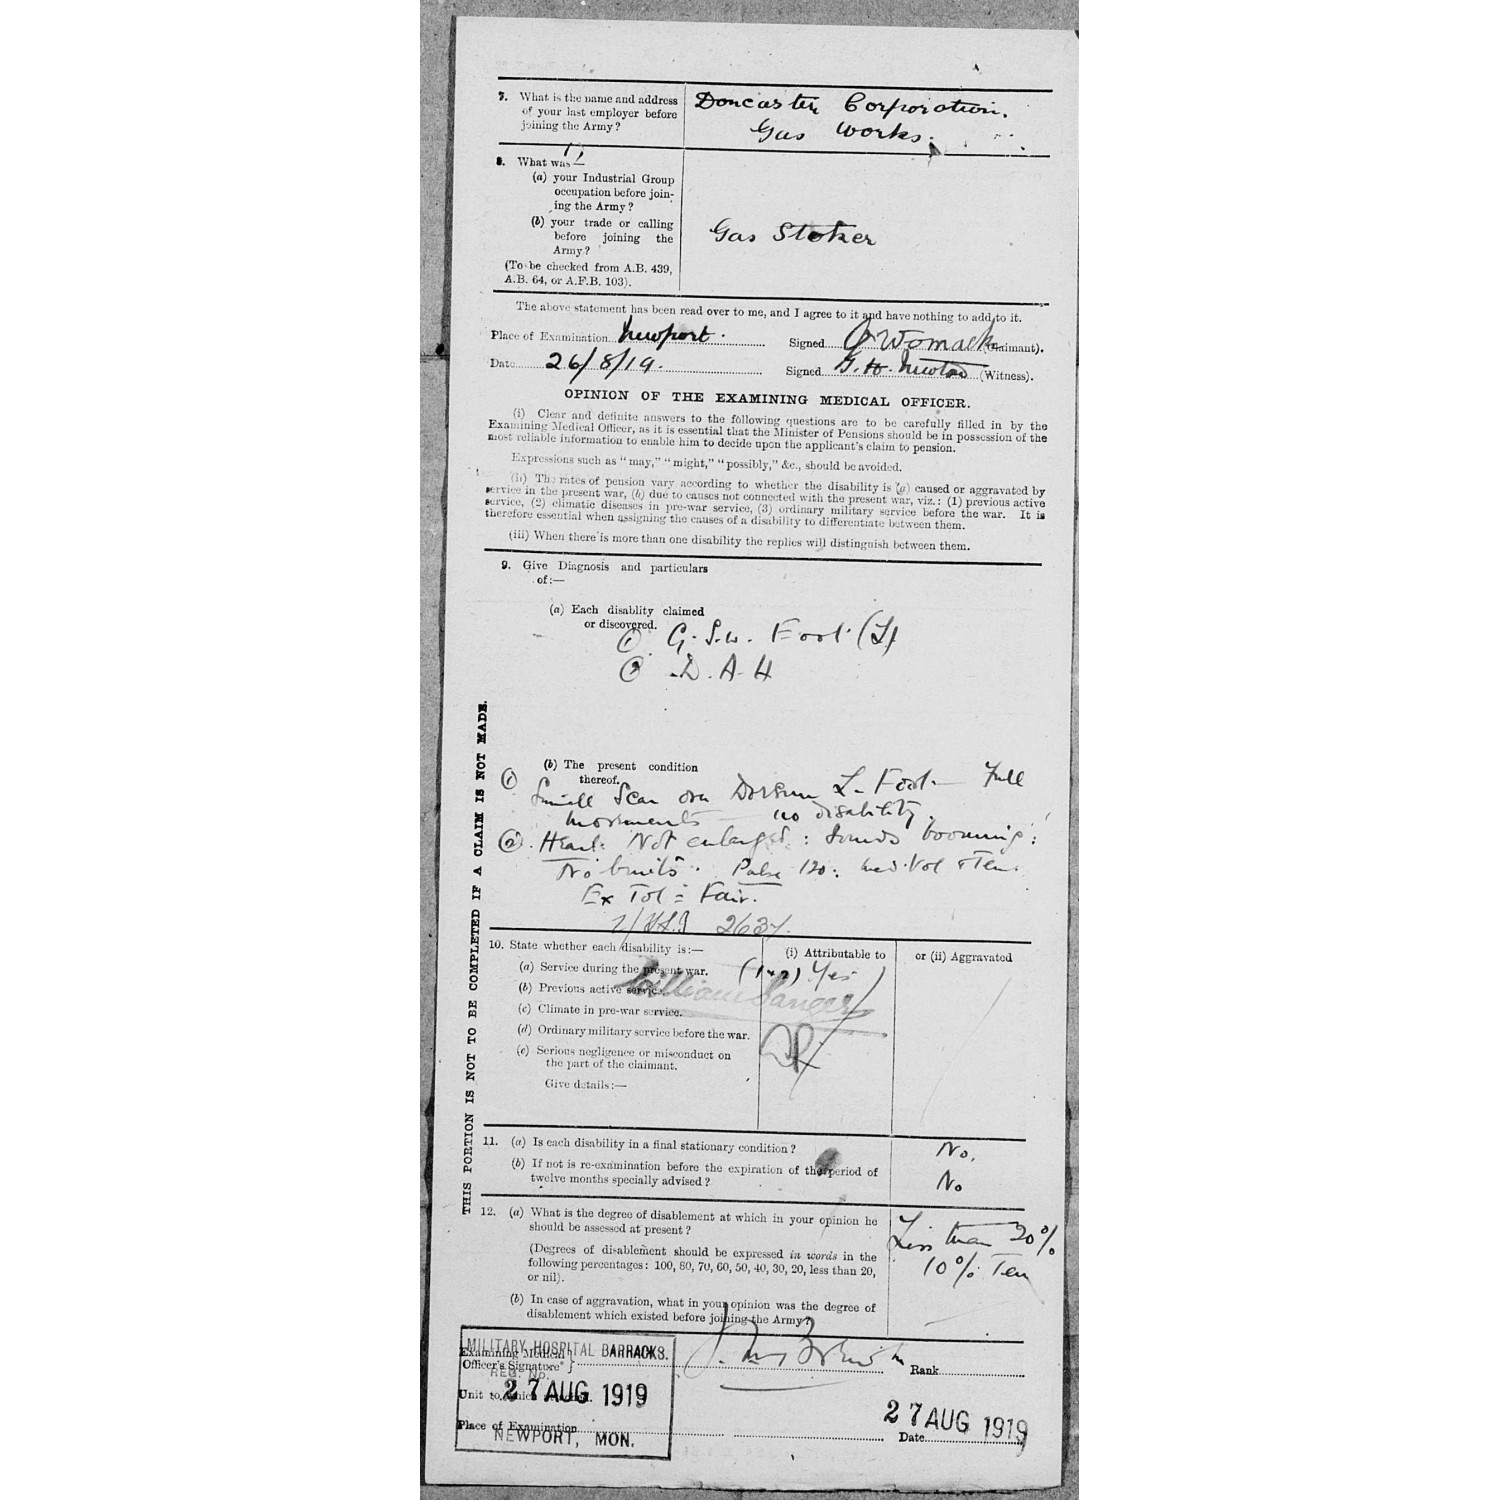 7. What is the name and address
of your last employer before
joining the Army?
Doncaster Corporation.
Gas Works.
8. What was—
(a) your Industrial Group
occupation before join-
ing the Army?
(b) your trade or calling
before joining the
Army?
(To be checked from A.B. 439,
A.B. 64, or A.F.B. 103).
Gas Stoker
The above statement has been read over to me, and I agree to it and have nothing to add to it.
Place of Examination Newport. Signed Womack (Claimant).
Date 26/8/19. Signed G. H. Newton (Witness).
OPINION OF THE EXAMINING MEDICAL OFFICER.
(i) Clear and definite answers to the following questions are to be carefully filled in by the
Examining Medical Officer, as it is essential that the Minister of Pensions should be in possession of the
most reliable information to enable him to decide upon the applicant's claim to pension.
Expressions such as "may," "might," "possibly," &c., should be avoided.
(ii) The rates of pension vary according to whether the disability is (a) caused or aggravated by
service in the present war, (b) due to causes not connected with the present war, viz.: (1) previous active
service, (2) climatic diseases in pre-war service, (3) ordinary military service before the war. It is
therefore essential when assigning the causes of a disability to differentiate between them.
(iii) When there is more than one disability the replies will distinguish between them.
9. Give Diagnosis and particulars
of:—
(a) Each disablity claimed
or discovered.
① G.S.W. Foot (L)
② D.A.H
THIS PORTION IS NOT TO BE COMPLETED IF A CLAIM IS NOT MADE.
(b) The present condition
thereof.
① Small Scar on Dorsum L. Foot — Full
movements — no disability.
② Heart: Not enlarged: Sounds booming:
No bruits. Pulse 120: med. Vol + Ten.
Ex Tol = Fair.
10. State whether each disability is:—
(i) Attributable to
or (ii) Aggravated
(a) Service during the present war. (1+2) Yes
(b) Previous active service.
William Sanger
(c) Climate in pre-war service.
(d) Ordinary military service before the war.
(e) Serious negligence or misconduct on
the part of the claimant.
Give details:—
11. (a) Is each disability in a final stationary condition? No.
(b) If not is re-examination before the expiration of the period of
twelve months specially advised? No
12. (a) What is the degree of disablement at which in your opinion he
should be assessed at present?
Less than 20%
10% Ten
(Degrees of disablement should be expressed in words in the
following percentages: 100, 80, 70, 60, 50, 40, 30, 20, less than 20,
or nil).
(b) In case of aggravation, what in your opinion was the degree of
disablement which existed before joining the Army?
MILITARY HOSPITAL BARRACKS.
Examining Medical
Officer's Signature
Rank
REG. No.
27 AUG 1919
Unit to which attached.
Place of Examination
NEWPORT, MON.
27 AUG 1919
Date